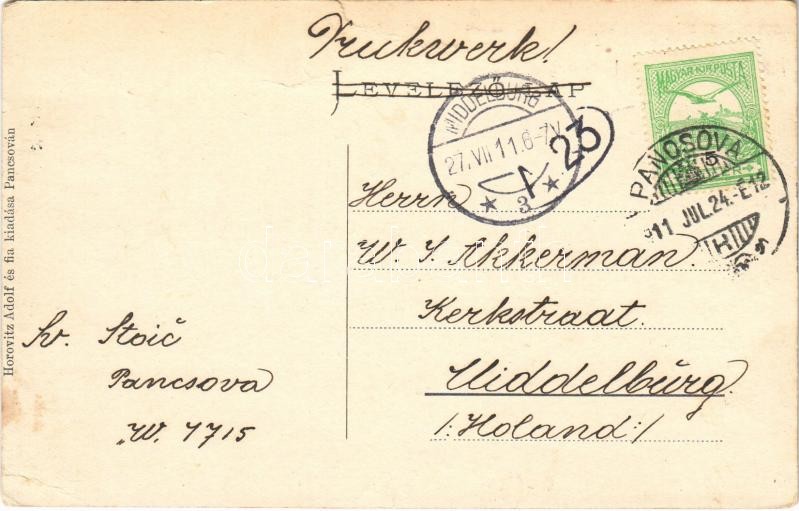 Drukwerk!
LEVELEZŐ-LAP
MAGYAR KIR. POSTA
MIDDELBURG
27.VII 11.6-7V
3
23
PANCSOVA
911 JUL.24.-E12
Herrn
W. J. Akkerman.
Kerkstraat.
Middelburg.
/:Holand:/
Sv. Stoić
Pancsova
W. 7715
Horovitz Adolf és fia kiadása Pancsován